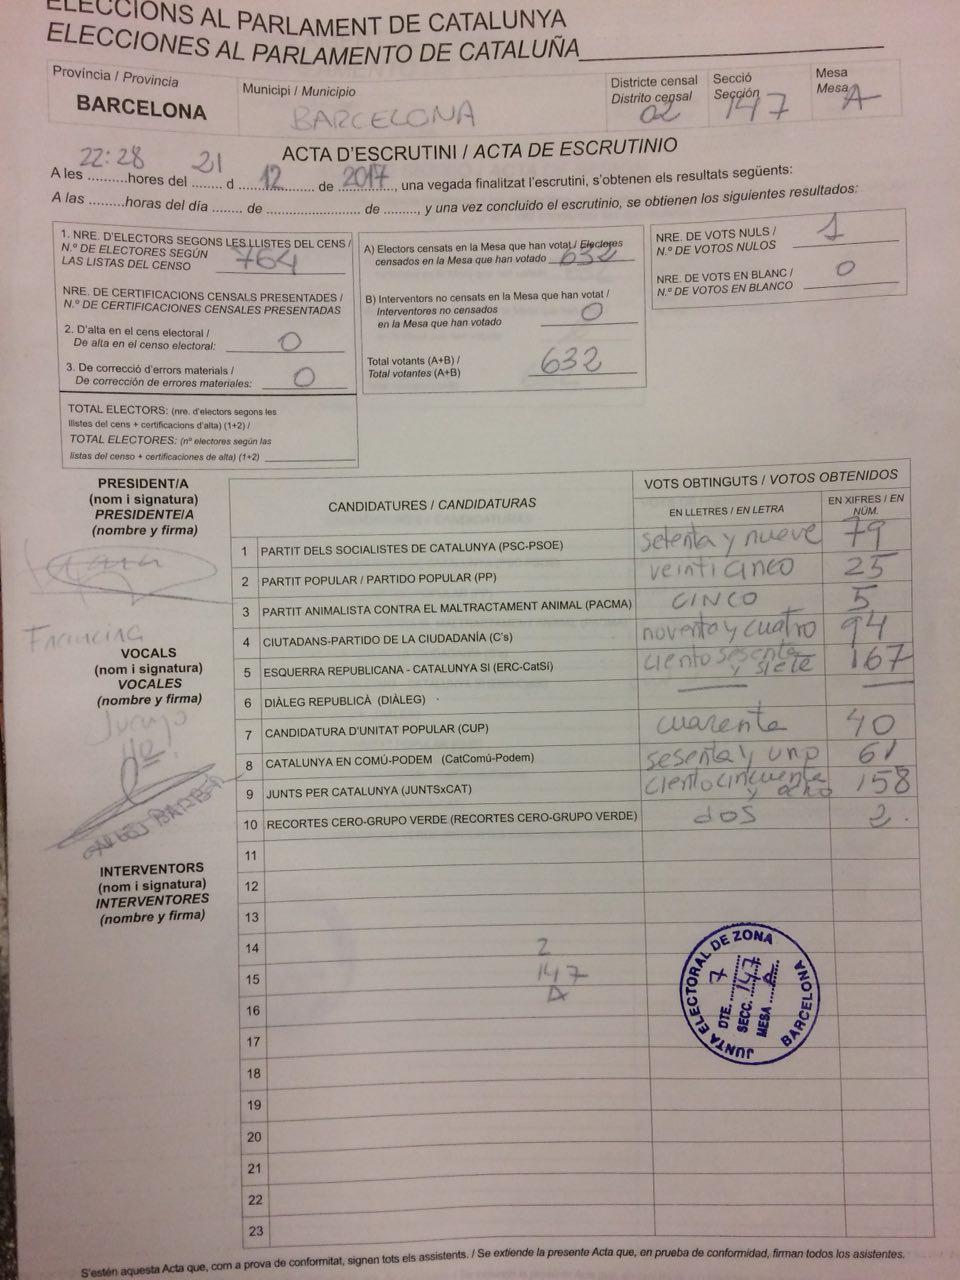 ELECCIONS AL PARLAMENT DE CATALUNYA
ELECCIONES AL PARLAMENTO DE CATALUÑA
Província / Provincia
BARCELONA
Municipi / Municipio
BARCELONA
Districte censal
Distrito censal
02
Secció
Sección
147
Mesa
Mesa
A
ACTA D'ESCRUTINI / ACTA DE ESCRUTINIO
A les 22:28 hores del 21 d 12 de 2017, una vegada finalitzat l'escrutini, s'obtenen els resultats següents:
A las ......... horas del día ........ de ....................... de ........, y una vez concluido el escrutinio, se obtienen los siguientes resultados:
1. NRE. D'ELECTORS SEGONS LES LLISTES DEL CENS /
N.º DE ELECTORES SEGÚN
LAS LISTAS DEL CENSO 764
NRE. DE CERTIFICACIONS CENSALS PRESENTADES /
N.º DE CERTIFICACIONES CENSALES PRESENTADAS
2. D'alta en el cens electoral /
De alta en el censo electoral: 0
3. De correcció d'errors materials /
De corrección de errores materiales: 0
TOTAL ELECTORS: (nre. d'electors segons les
llistes del cens + certificacions d'alta) (1+2) /
TOTAL ELECTORES: (nº electores según las
listas del censo + certificaciones de alta) (1+2)
A) Electors censats en la Mesa que han votat / Electores
censados en la Mesa que han votado 632
B) Interventors no censats en la Mesa que han votat /
Interventores no censados
en la Mesa que han votado 0
Total votants (A+B) /
Total votantes (A+B) 632
NRE. DE VOTS NULS /
N.º DE VOTOS NULOS 1
NRE. DE VOTS EN BLANC /
N.º DE VOTOS EN BLANCO 0
PRESIDENT/A
(nom i signatura)
PRESIDENTE/A
(nombre y firma)
VOCALS
(nom i signatura)
VOCALES
(nombre y firma)
INTERVENTORS
(nom i signatura)
INTERVENTORES
(nombre y firma)
CANDIDATURES / CANDIDATURAS
VOTS OBTINGUTS / VOTOS OBTENIDOS
EN LLETRES / EN LETRA
EN XIFRES / EN
NÚM.
1 PARTIT DELS SOCIALISTES DE CATALUNYA (PSC-PSOE) setenta y nueve 79
2 PARTIT POPULAR / PARTIDO POPULAR (PP) veinticinco 25
3 PARTIT ANIMALISTA CONTRA EL MALTRACTAMENT ANIMAL (PACMA) CINCO 5
4 CIUTADANS-PARTIDO DE LA CIUDADANÍA (C's) noventa y cuatro 94
5 ESQUERRA REPUBLICANA - CATALUNYA SI (ERC-CatSí) ciento sesenta y siete 167
6 DIÀLEG REPUBLICÀ (DIÀLEG)
7 CANDIDATURA D'UNITAT POPULAR (CUP) cuarenta 40
8 CATALUNYA EN COMÚ-PODEM (CatComú-Podem) sesenta y uno 61
9 JUNTS PER CATALUNYA (JUNTSxCAT) ciento cincuenta y ocho 158
10 RECORTES CERO-GRUPO VERDE (RECORTES CERO-GRUPO VERDE) dos 2
11
12
13
14
15
16
17
18
19
20
21
22
23
2
147
A
JUNTA ELECTORAL DE ZONA
DTE. 7
SECC. 147
MESA A
BARCELONA
S'estén aquesta Acta que, com a prova de conformitat, signen tots els assistents. / Se extiende la presente Acta que, en prueba de conformidad, firman todos los asistentes.